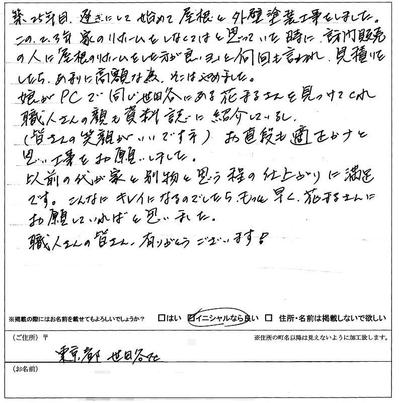 築25年目、遅きにして始めて屋根と外壁塗装工事をしました。
この2、3年家のリホームをしなくてはと思っていた時に、訪問販売
の人に屋根のリホームをした方が良いヨと何回も言われ、見積りを
したら、あまりに高額な為、そこはやめました。
娘がPCで同じ世田谷にある花まるさんを見つけてくれ
職人さんの顔も資料説に紹介しているし、
(皆さんの笑顔がいいですネ) お値段も適正かナと
思い工事をお願いしました。
以前の我が家と別物と思う程の仕上がりに満足
です。こんなにキレイになるのでしたら、もっと早く、花まるさんに
お願していればと思いました。
職人さんの皆さん、有りがとうございます!
※掲載の際にはお名前を載せてもよろしいでしょうか? □はい ☑イニシャルなら良い □住所・名前は掲載しないで欲しい
(ご住所) 〒 ※住所の町名以降は見えないように加工致します。
東京都 世田谷区
(お名前)